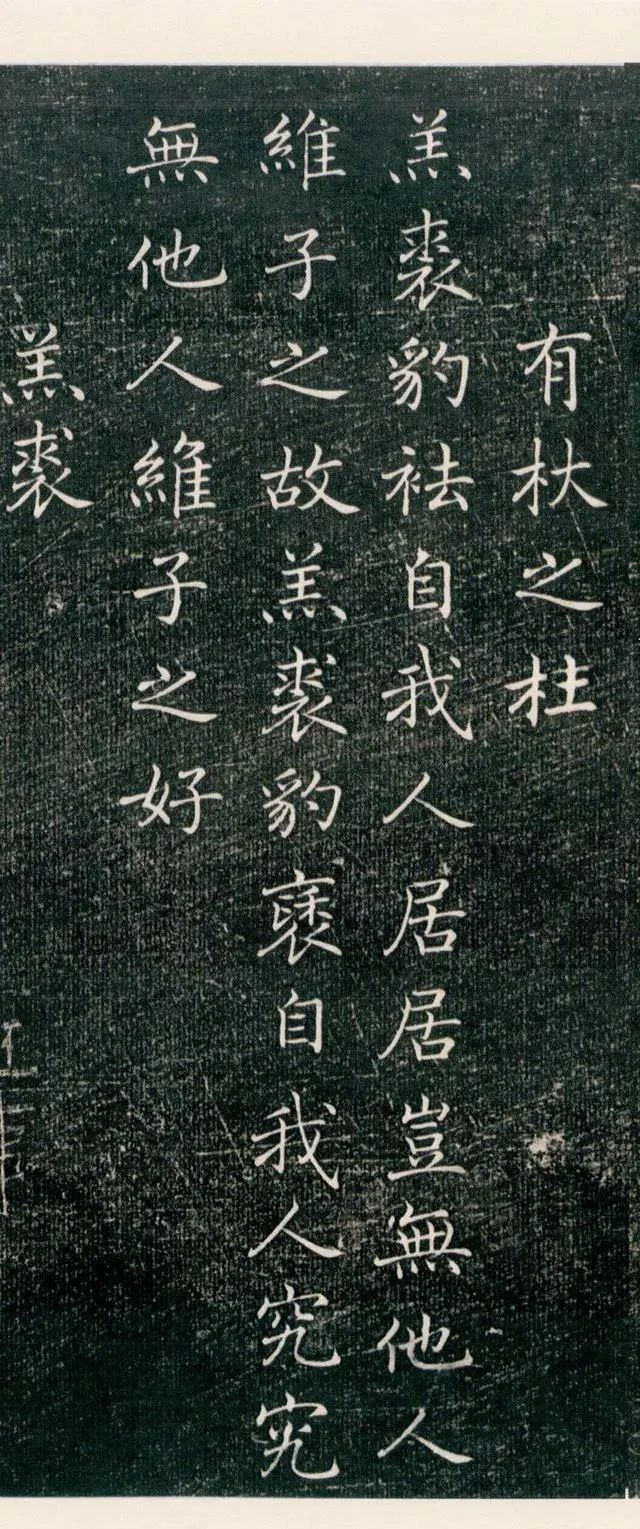 有杕之杜
羔裘豹袪自我人居居豈無他人
維子之故羔裘豹褎自我人究究
無他人維子之好
羔裘